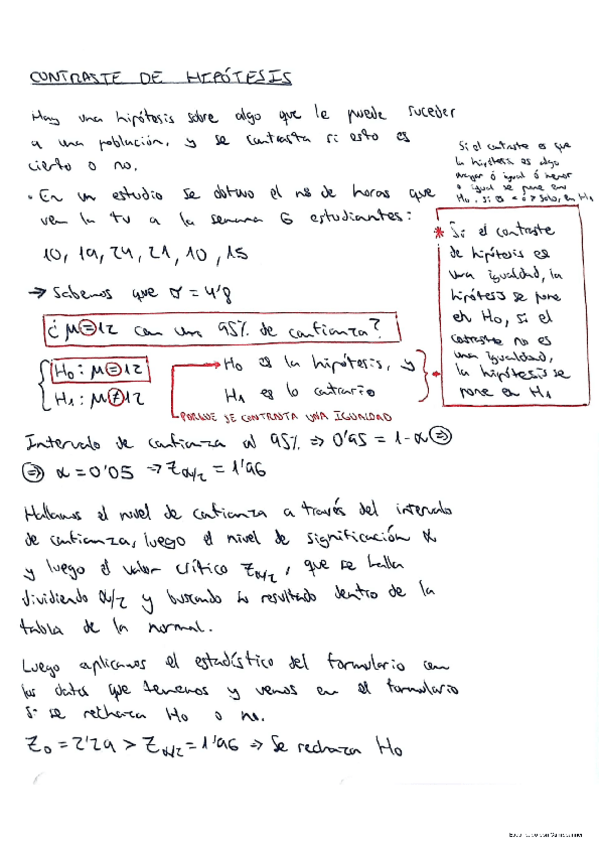 CONTRASTE DE HIPÓTESIS
Hay una hipótesis sobre algo que le puede suceder
a una población, y se contrasta si esto es
cierto o no.
Si el contraste es que
la hipótesis es algo
mayor ó igual ó menor
o igual se pone en
H0. Si es < ó > solo, en H1
· En un estudio se obtuvo el nº de horas que
ven la tv a la semana 6 estudiantes:
10, 19, 24, 21, 10, 15
→ Sabemos que σ = 4'8
¿μ=12 con un 95% de confianza?
H0: μ=12
H1: μ≠12
H0 es la hipótesis, y
H1 es lo contrario
PORQUE SE CONTRASTA UNA IGUALDAD
* Si el contraste
de hipótesis es
una igualdad, la
hipótesis se pone
en H0, si el
contraste no es
una igualdad,
la hipótesis se
pone en H1
Intervalo de confianza al 95% ⇒ 0'95 = 1-α ⇒
⇒ α = 0'05 → Zα/2 = 1'96
Hallamos el nivel de confianza a través del intervalo
de confianza, luego el nivel de significación α
y luego el valor crítico Zα/2, que se halla
dividiendo α/2 y buscando su resultado dentro de la
tabla de la normal.
Luego aplicamos el estadístico del formulario con
los datos que tenemos y vemos en el formulario
si se rechaza H0 o no.
Z0 = 2'29 > Zα/2 = 1'96 ⇒ Se rechaza H0